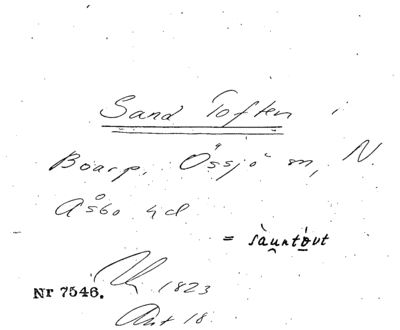 Sand Toften i
Boarp, Össjö sn, N.
Åsbo hd
= sàuntòvt
Nr 7546. 1823
Akt 18.